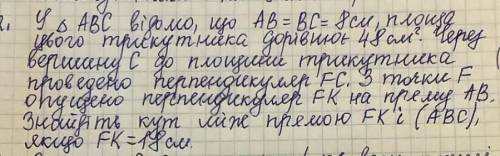 2. У △ ABC відомо, що AB = BC = 8 см, площа
цього трикутника дорівнює 48 см². Через
вершину C до площини трикутника
проведено перпендикуляр FC. З точки F
опущено перпендикуляр FK на пряму AB.
Знайдіть кут між прямою FK і (ABC),
якщо FK = 18 см.